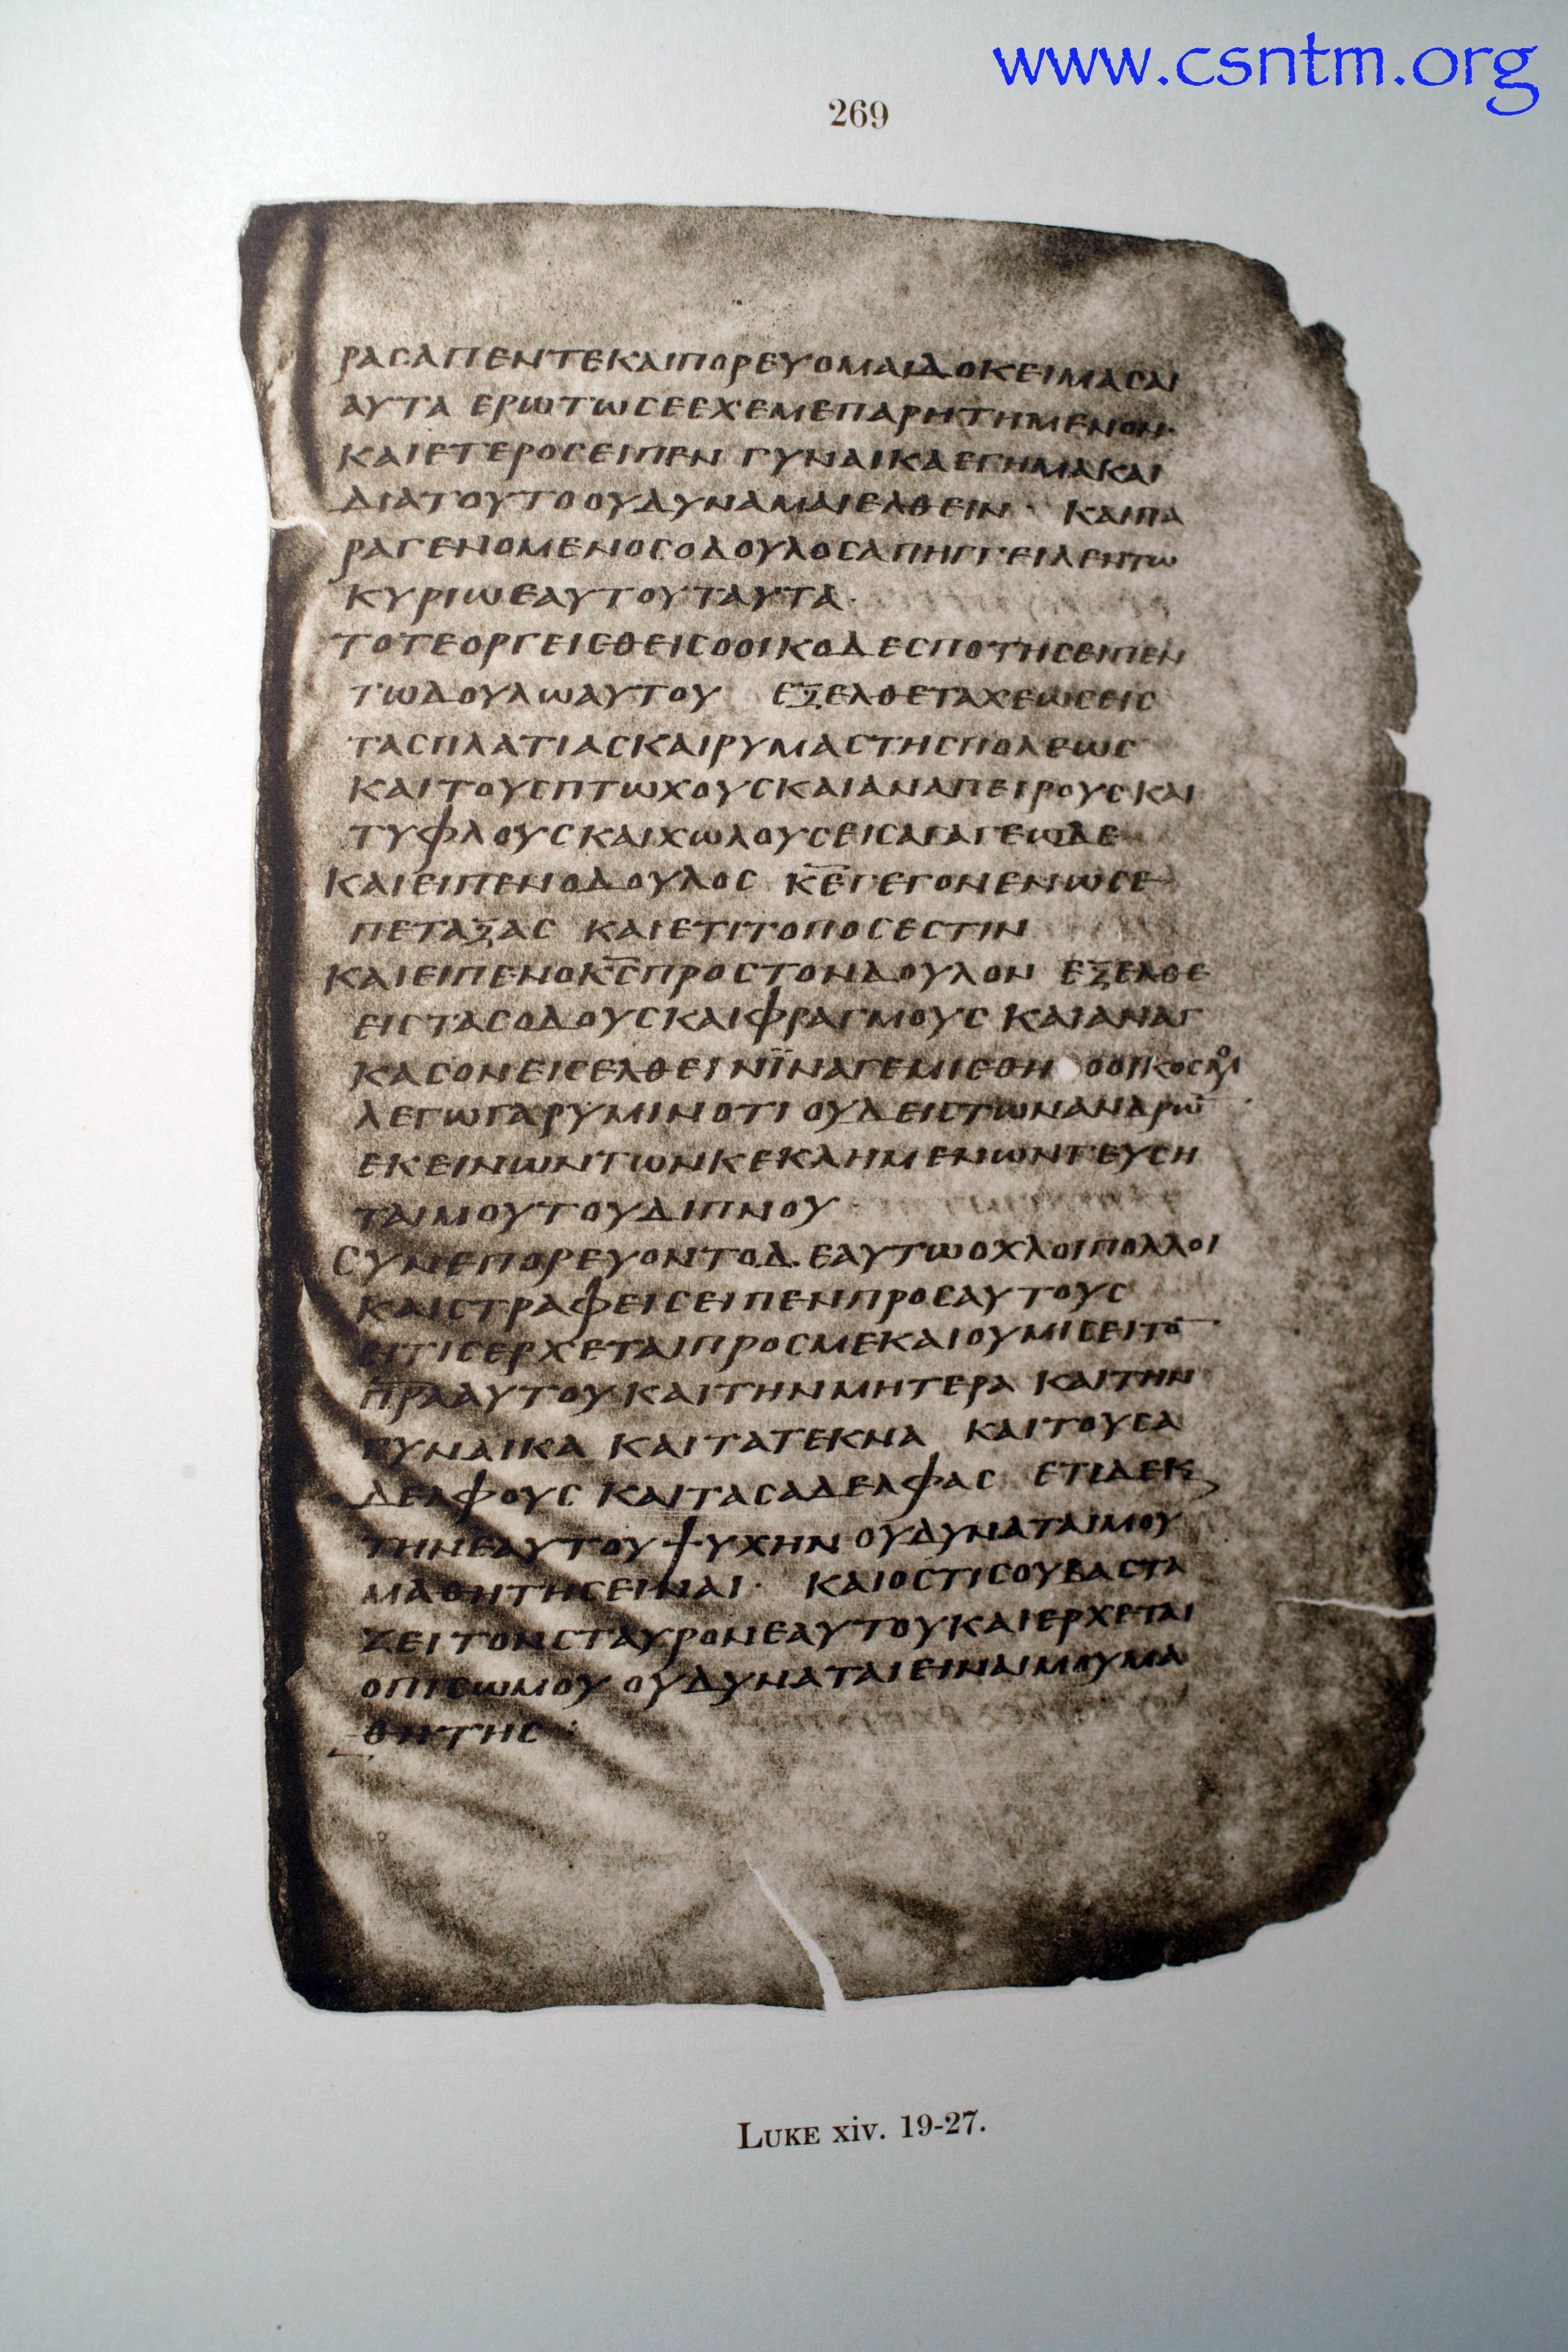 www.csntm.org
269
ΡΑϹΑΠΕΝΤΕΚΑΙΠΟΡΕΥΟΜΑΙΔΟΚΕΙΜΑϹΑΙ
ΑΥΤΑ ΕΡΩΤΩϹΕΕΧΕΜΕΠΑΡΗΤΗΜΕΝΟΝ·
ΚΑΙΕΤΕΡΟϹΕΙΠΕΝ ΓΥΝΑΙΚΑΕΓΗΜΑΚΑΙ
ΔΙΑΤΟΥΤΟΟΥΔΥΝΑΜΑΙΕΛΘΕΙΝ · ΚΑΙΠΑ
ΡΑΓΕΝΟΜΕΝΟϹΟΔΟΥΛΟϹΑΠΗΓΓΕΙΛΕΝΤΩ
ΚΥΡΙΩΕΑΥΤΟΥΤΑΥΤΑ·
ΤΟΤΕΟΡΓΕΙϹΘΕΙϹΟΟΙΚΟΔΕϹΠΟΤΗϹΕΙΠΕΝ
ΤΩΔΟΥΛΩΑΥΤΟΥ ΕΞΕΛΘΕΤΑΧΕΩϹΕΙϹ
ΤΑϹΠΛΑΤΙΑϹΚΑΙΡΥΜΑϹΤΗϹΠΟΛΕΩϹ
ΚΑΙΤΟΥϹΠΤΩΧΟΥϹΚΑΙΑΝΑΠΕΙΡΟΥϹΚΑΙ
ΤΥΦΛΟΥϹΚΑΙΧΩΛΟΥϹΕΙϹΑΓΑΓΕΩΔΕ
ΚΑΙΕΙΠΕΝΟΔΟΥΛΟϹ Κ̅Ε̅ΓΕΓΟΝΕΝΩϹΕ
ΠΕΤΑΞΑϹ ΚΑΙΕΤΙΤΟΠΟϹΕϹΤΙΝ
ΚΑΙΕΙΠΕΝΟΚ̅Ϲ̅ΠΡΟϹΤΟΝΔΟΥΛΟΝ ΕΞΕΛΘΕ
ΕΙϹΤΑϹΟΔΟΥϹΚΑΙΦΡΑΓΜΟΥϹ ΚΑΙΑΝΑΓ
ΚΑϹΟΝΕΙϹΕΛΘΕΙΝΪΝΑΓΕΜΙϹΘΗ ΟΟΙΚΟϹ
ΛΕΓΩΓΑΡΥΜΙΝΟΤΙ ΟΥΔΕΙϹΤΩΝΑΝΔΡΩ̅
ΕΚΕΙΝΩΝΤΩΝΚΕΚΛΗΜΕΝΩΝΓΕΥϹΗ
ΤΑΙΜΟΥΤΟΥΔΙΠΝΟΥ
ϹΥΝΕΠΟΡΕΥΟΝΤΟΔΕΑΥΤΩΟΧΛΟΙΠΟΛΛΟΙ
ΚΑΙϹΤΡΑΦΕΙϹΕΙΠΕΝΠΡΟϹΑΥΤΟΥϹ
ΕΙΤΙϹΕΡΧΕΤΑΙΠΡΟϹΜΕΚΑΙΟΥΜΙϹΕΙΤΟ̅
Π̅Ρ̅Α̅ΑΥΤΟΥΚΑΙΤΗΝΜΗΤΕΡΑ ΚΑΙΤΗΝ
ΓΥΝΑΙΚΑ ΚΑΙΤΑΤΕΚΝΑ ΚΑΙΤΟΥϹΑ
ΔΕΛΦΟΥϹ ΚΑΙΤΑϹΑΔΕΛΦΑϹ ΕΤΙΔΕΚϗ
ΤΗΝΕΑΥΤΟΥΨΥΧΗΝ ΟΥΔΥΝΑΤΑΙΜΟΥ
ΜΑΘΗΤΗϹΕΙΝΑΙ· ΚΑΙΟϹΤΙϹΟΥΒΑϹΤΑ
ΖΕΙΤΟΝϹΤΑΥΡΟΝΕΑΥΤΟΥΚΑΙΕΡΧΕΤΑΙ
ΟΠΙϹΩΜΟΥ ΟΥΔΥΝΑΤΑΙΕΙΝΑΙΜΟΥΜΑ
ΘΗΤΗϹ :
LUKE xiv. 19-27.